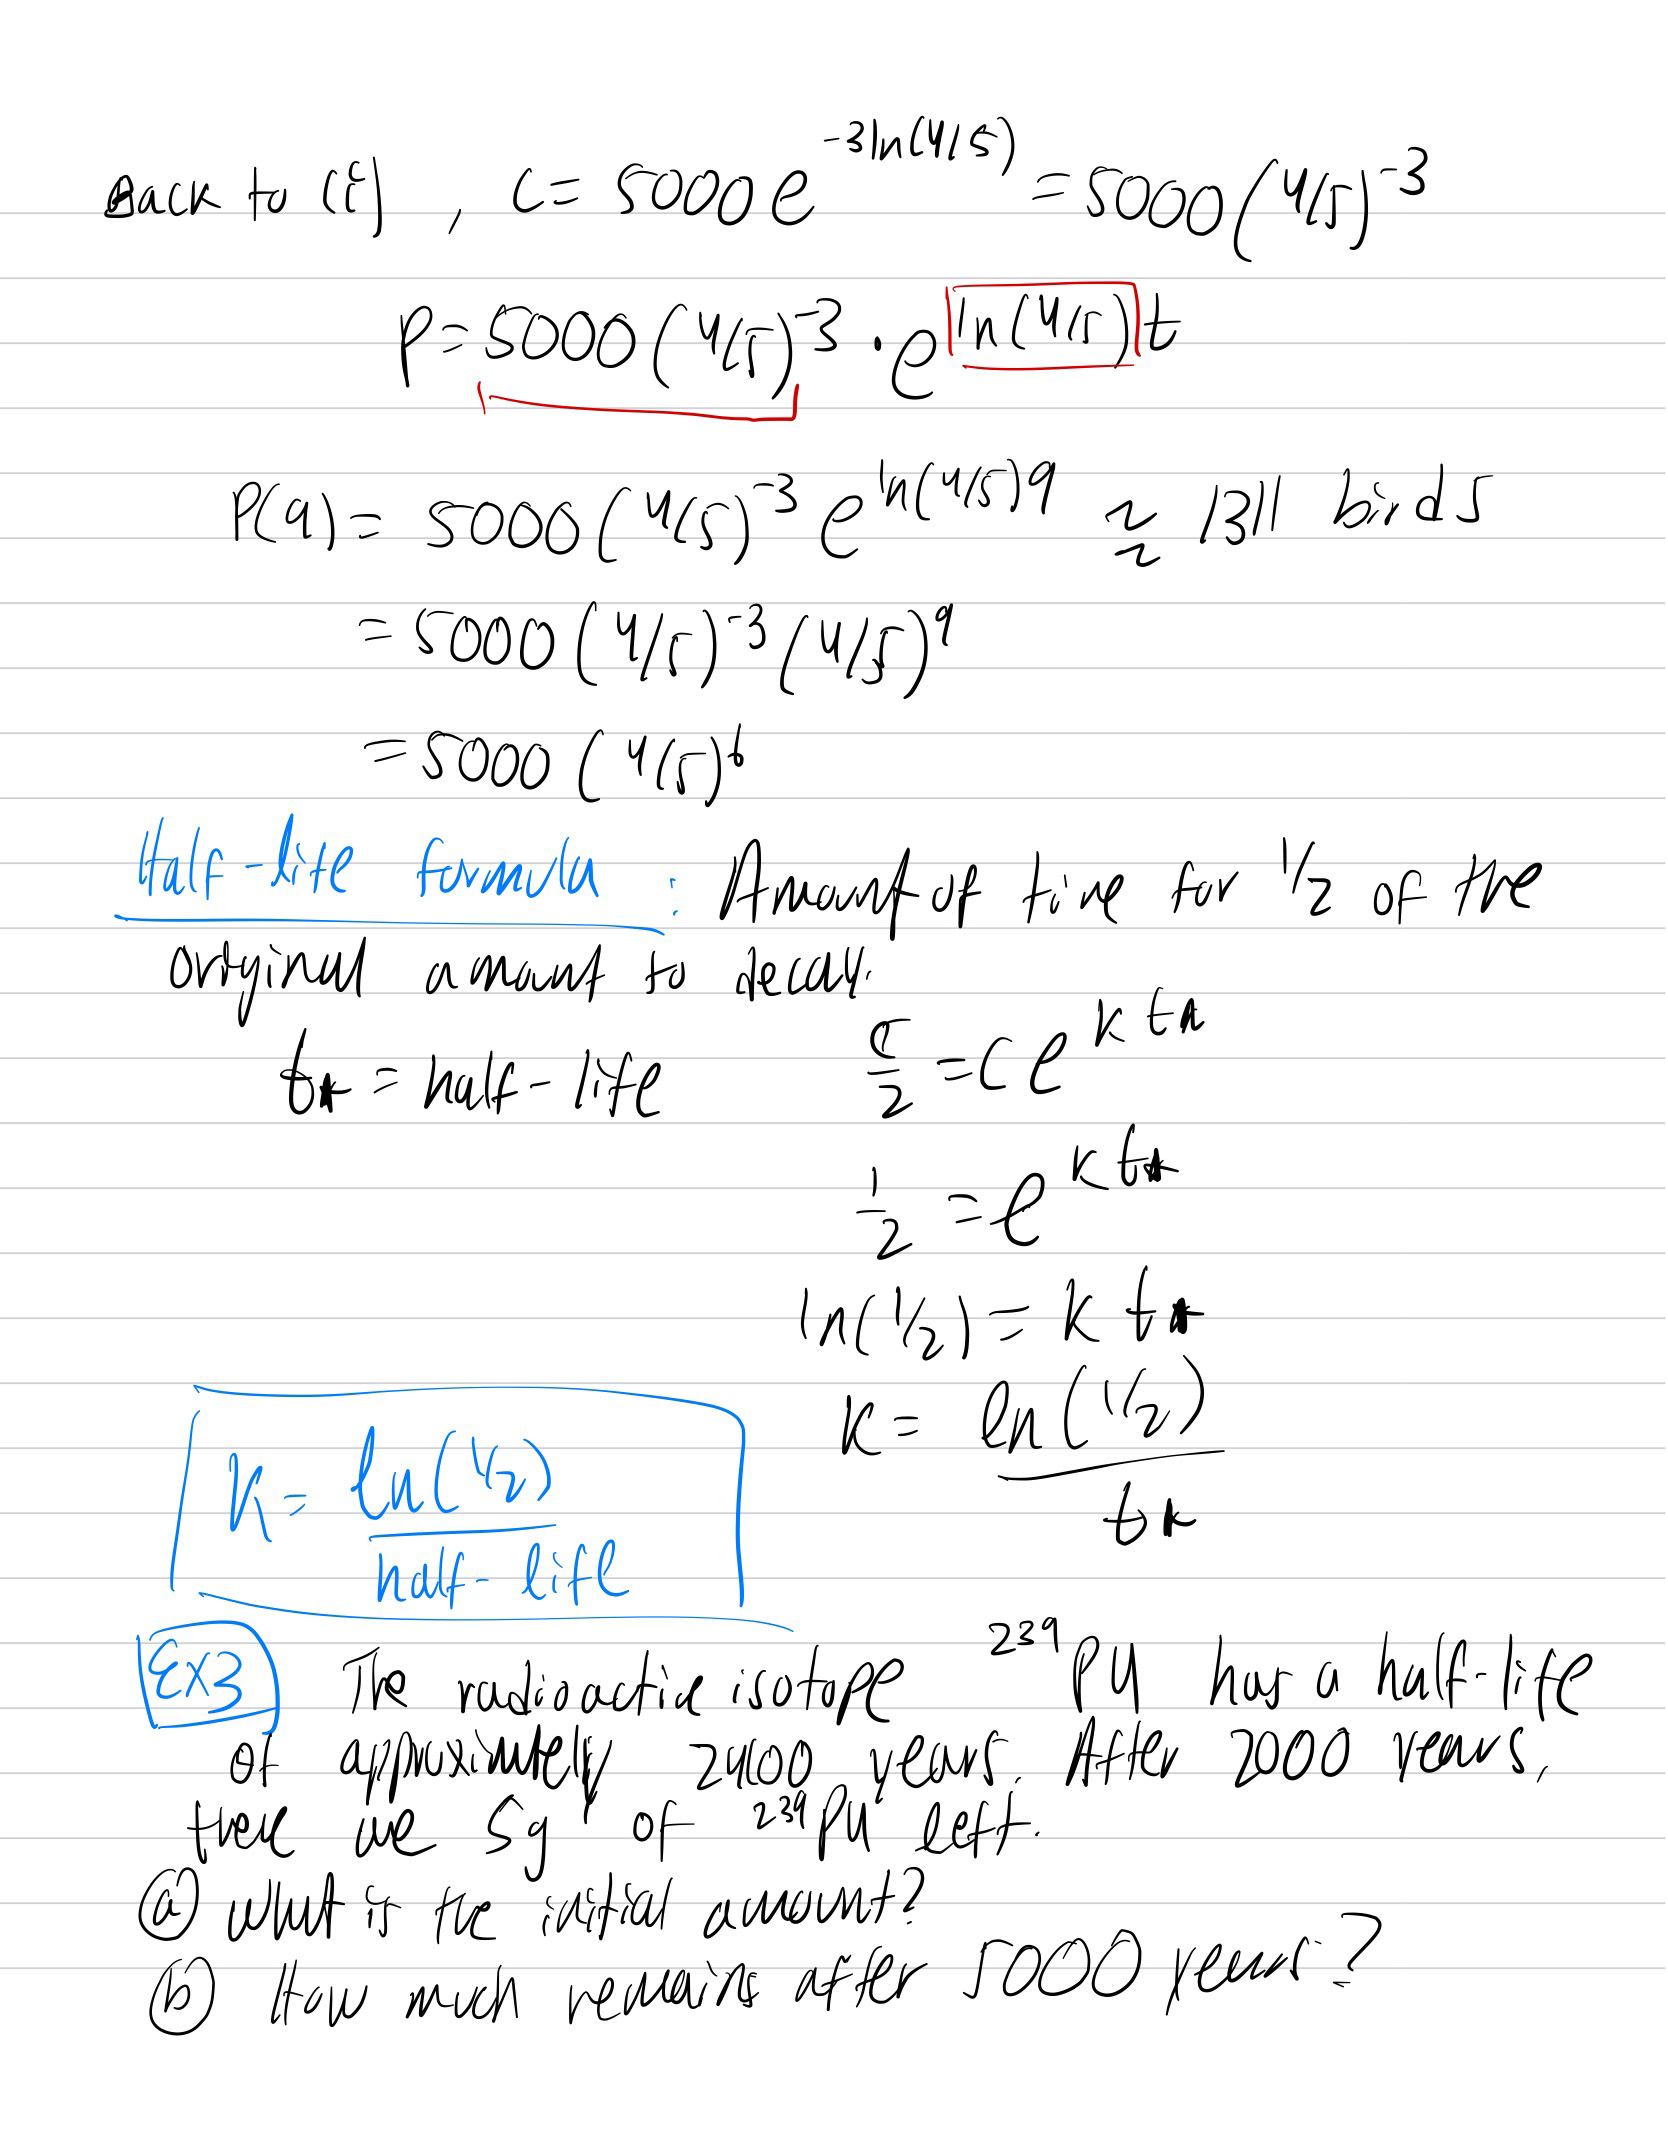 Back to (i) , C = 5000 e^{-3ln(4/5)} = 5000(4/5)^{-3}
P = 5000(4/5)^{-3} · e^{ln(4/5)t}
P(9) = 5000(4/5)^{-3} e^{ln(4/5)9} ≈ 1311 birds
= 5000(4/5)^{-3}(4/5)^9
= 5000(4/5)^6
Half-life formula : Amount of time for 1/2 of the
original amount to decay.
t* = half-life
C/2 = Ce^{kt*}
1/2 = e^{kt*}
ln(1/2) = kt*
k = ln(1/2)/t*
k = ln(1/2)/half-life
Ex3 The radioactive isotope ^{239}Pu has a half-life
of approximately 24100 years. After 2000 years,
there are 5g of ^{239}Pu left.
(a) What is the initial amount?
(b) How much remains after 5000 years?